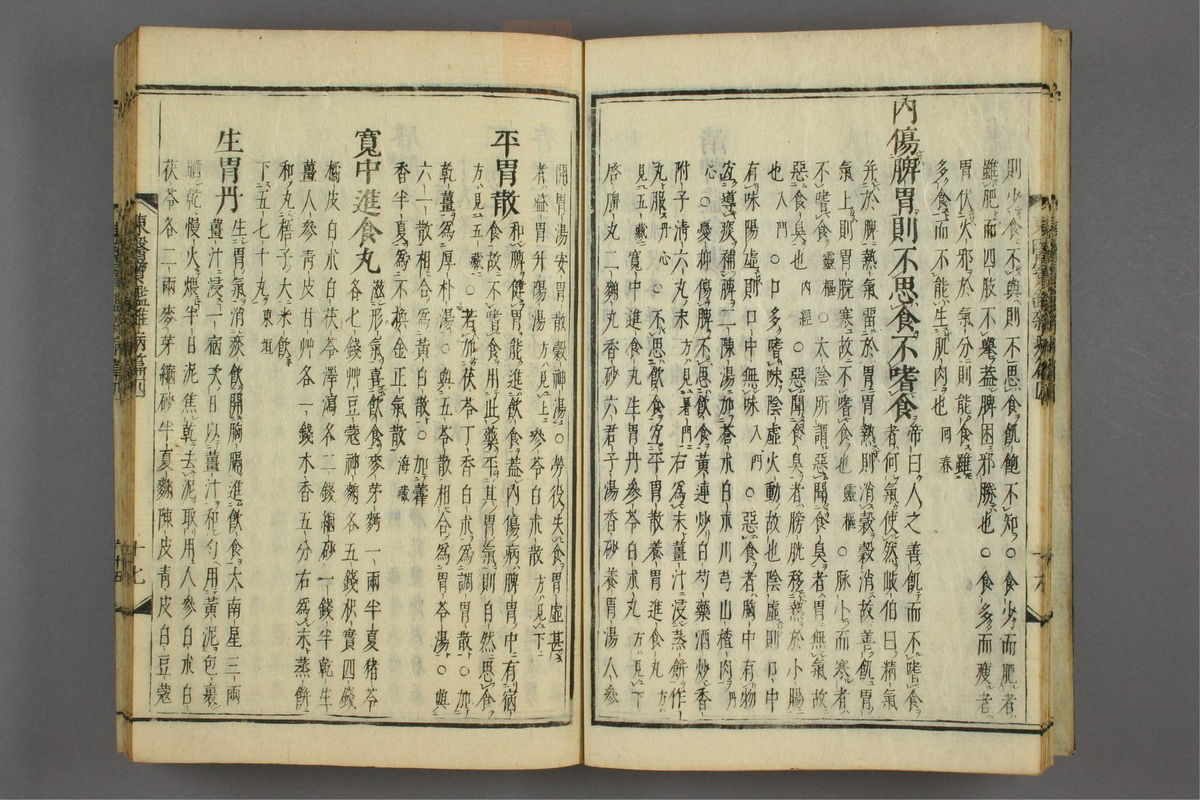 則少食不與則不思食飢飽不知○食少而肥者
雖肥而四肢不擧蓋脾困邪勝也○食多而瘦者
胃伏火邪於氣分則能食雖
多食而不能生肌肉也 回春
內傷脾胃則不思食不嗜食 帝曰人之善飢而不嗜食
者何氣使然岐伯曰精氣
并於脾熱氣留於胃胃熱則消穀穀消故善飢胃
氣上則胃脘寒故不嗜食也 靈樞 ○脉小而寒者
不嗜食 靈樞 ○太陰所謂惡聞食臭者胃無氣故
惡食臭也 內經 ○惡聞食臭者膀胱移熱於小腸
也 入門 ○口中無味 入門 ○惡食者胸中有物
有味陽虛則口中無味陰虛火動故也陰虛則口中
宜導痰補脾二陳湯加蒼朮白朮川芎山楂肉 丹心
○憂抑傷脾不思飲食黃連炒白芍藥酒炒香
附子淸六丸末 方見暑門 右爲末薑汁浸蒸餠作
丸服 丹心 ○不思飲食宜平胃散養胃進食丸 方見下
見五藏 寬中進食丸生胃丹參苓白朮丸 方見下
啓脾丸二麴丸香砂六君子湯香砂養胃湯人參
開胃湯安胃散穀神湯○勞役失食胃虛甚
者益胃升陽湯 方見上 參苓白朮散 方見下
平胃散 和脾健胃能進飮食蓋內傷病脾胃中有病
食故不嗜食用此藥平其胃氣則自然思食
方見五藏 ○若加茯苓丁香白朮爲調胃散○加
乾薑爲厚朴湯○與五苓散相合爲胃苓湯○與
六一散相合爲黃白散○加藿
香半夏爲不換金正氣散 海藏
寬中進食丸 滋形氣喜飮食麥芽麴一兩半夏猪苓
各七錢艸豆蔲神麴各五錢枳實四錢
橘皮白朮白茯苓澤瀉各二錢縮砂一錢半乾生
薑人參靑皮甘艸各一錢木香五分右爲末蒸餠
和丸梧子大米飮
下五七十丸 東垣
生胃丹 生胃氣消痰飮開胸膈進飮食大南星三兩
薑汁浸一宿次日以薑汁和勻用黃泥包裹
晒乾慢火煨半日泥焦乾去泥取用人參白朮白
茯苓各二兩麥芽縮砂半夏麴陳皮靑皮白豆蔲